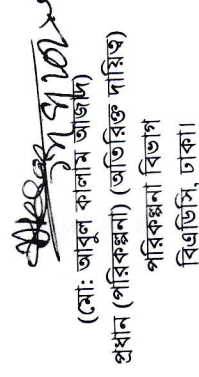 (মো: আবুল কালাম আজাদ)
প্রধান (পরিকল্পনা) (অতিরিক্ত দায়িত্ব)
পরিকল্পনা বিভাগ
বিএডিসি, ঢাকা।